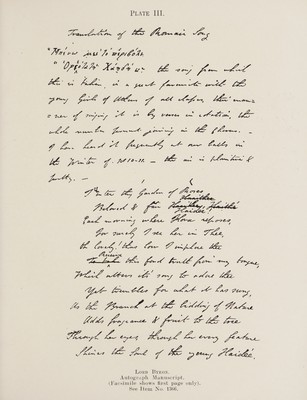 PLATE III.
Translation of the Romaic Song
the song from which
this is taken, is a great favourite with the
young Girls of Athens of all classes, their mann-
-er of singing it is by verses in rotation, the
whole number present joining in the Chorus. —
I have heard it frequently at our balls in
the Winter of 1810-11. — the air is plaintive &
pretty. —
I enter thy Garden of Roses
Haidée
Beloved & fair Haidée
Each morning where Flora reposes,
For surely I see her in Thee,
Oh lovely! thus low I implore thee
Receive this fond truth from my tongue,
Which utters its song to adore thee
Yet trembles for what it has sung,
As the Branch at the bidding of Nature
Adds fragrance & fruit to the tree
Through her eyes through her every feature
Shines the Soul of the young Haidée.
LORD BYRON.
Autograph Manuscript.
(Facsimile shows first page only).
See Item No. 1366.